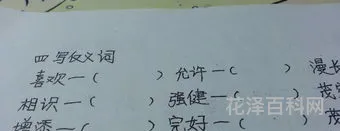 四 写仅义词
喜欢—( ) 允许—( ) 漫长
相识—( ) 强健—( ) 茂
增添—( ) 完好—( )
花泽百科网